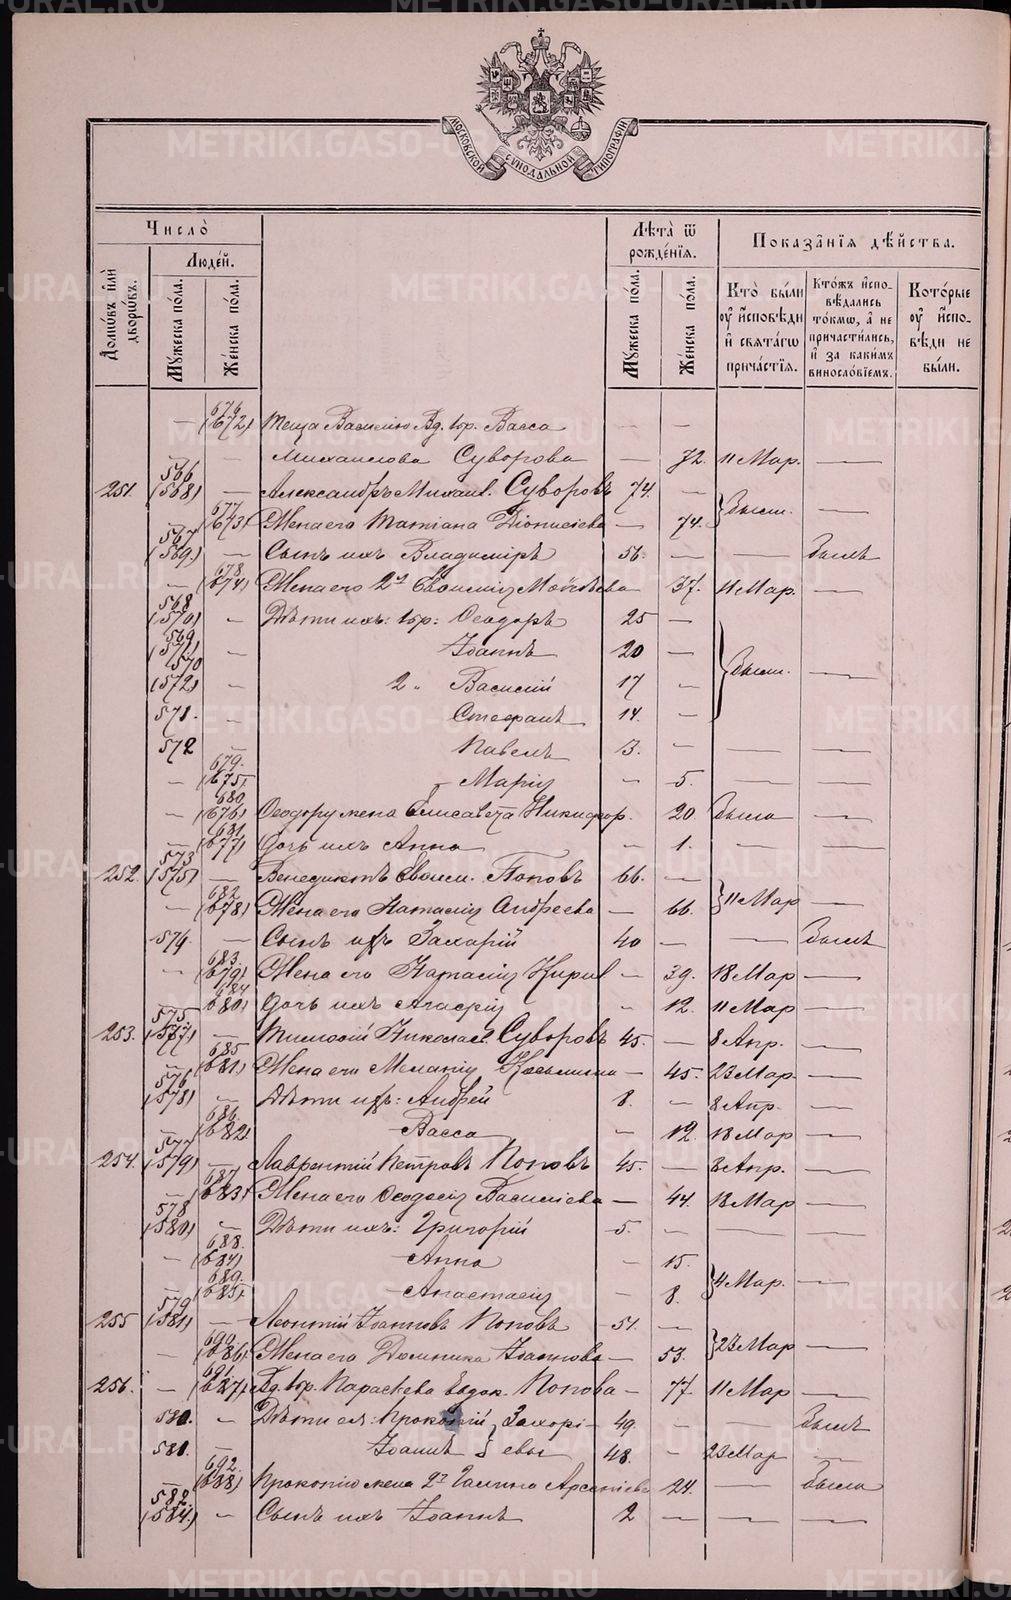 МОСКОВСКОЙ СѴНОДАЛЬНОЙ ТИПОГРАФІИ
Число̀
Людей.
Лѣта̀ ѿ рожде́нїѧ.
Показа̑нїѧ дѣ́йства.
Домѡ́въ и҆лѝ дворѡ́въ.
Мꙋ́жеска по́ла.
Же́нска по́ла.
Мꙋ́жеска по́ла.
Же́нска по́ла.
Кто̀ бы́ли ᲂу҆ и҆сповѣ́ди и҆ свѧта́гѡ прича́стїѧ.
Кто́жъ и҆сповѣ́дались то́кмѡ, а҆ не причасти́лись, и҆ за каки́мъ виносло́вїемъ.
Кото́рые ᲂу҆ и҆спо-вѣ́ди не бы́ли.
— 676 (672) Теща Василію Вд. пр. Васса — —
— — Михаилова Суворова — 72. 11 Мар. —
251. 566 (568) — Александръ Михаил. Суворовъ 74. — Были. —
— 677 (673) Жена его Татіана Діонисіева — 74.
567 (569) — Сынъ ихъ Владиміръ 56. — — Былъ
— 678 (674) Жена его 2я Евѳимія Моѷсѣева 37. 11 Мар. —
568 (570) — Дѣти ихъ: пр: Ѳеодоръ 25 —
569 (571) — Іоаннъ 20 — Были. —
570 (572) — 2. Василій 17 —
571. — Стефанъ 14. —
572 — Павелъ 3. — — —
— 679. (675) Марія — 5. — —
— 680 (676) Ѳеодору жена Елисавета Никифор. 20 Была —
— 681 (677) Дочь ихъ Анна — 1. — —
252. 573 (575) — Венедиктъ Евѳим. Поповъ 66. —
— 682 (678) Жена его Наталія Андреева — 66. 11 Мар —
574. — Сынъ ихъ Захарій 40 — — Былъ
— 683. (679) Жена его Наталія Кирил — 39. 18 Мар —
— 684 (680) Дочь ихъ Агафія — 12. 11 Мар —
253. 575 (577) — Тимоѳій Николаев. Суворовъ 45. — 8 Апр. —
— 685 (681) Жена его Меланія Косьмина — 45. 23 Мар. —
576 (578) — Дѣти ихъ: Андрей 8. — 8 Апр. —
— 686 (682) Васса — 12. 18 Мар —
254. 577 (579) — Лаврентій Петровъ Поповъ 45. — 8 Апр. —
— 687 (683) Жена его Ѳеодосія Василіева — 44. 18 Мар. —
578 (580) — Дѣти ихъ: Григорій 5. — — —
— 688. (684) Анна — 15.
— 689. (685) Анастасія — 8. 4 Мар. —
255 579 (581) — Леонтій Іоанновъ Поповъ 51. —
— 690 (686) Жена его Домника Іоаннова — 53. 23 Мар —
256. — 691 (687) Вд. пр. Параскева Евдок. Попова — 77. 11 Мар —
580. — Дѣти ея: Прокопій } Захарі- 49. — — Былъ
581. — Іоаннъ } евы 48. — 23 Мар —
— 692. (688) Прокопію жена 2я Галина Арсеніева 24. — Была
582. (584) — Сынъ ихъ Іоаннъ 2 — — —
METRIKI.GASO-URAL.RU